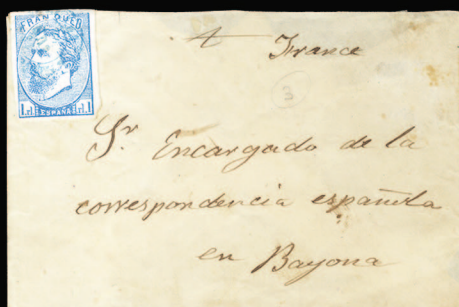 FRANQUEO
1 rl. rl. 1
ESPAÑA
France
3
Sr. Encargado de la
correspondencia española
en Bayona